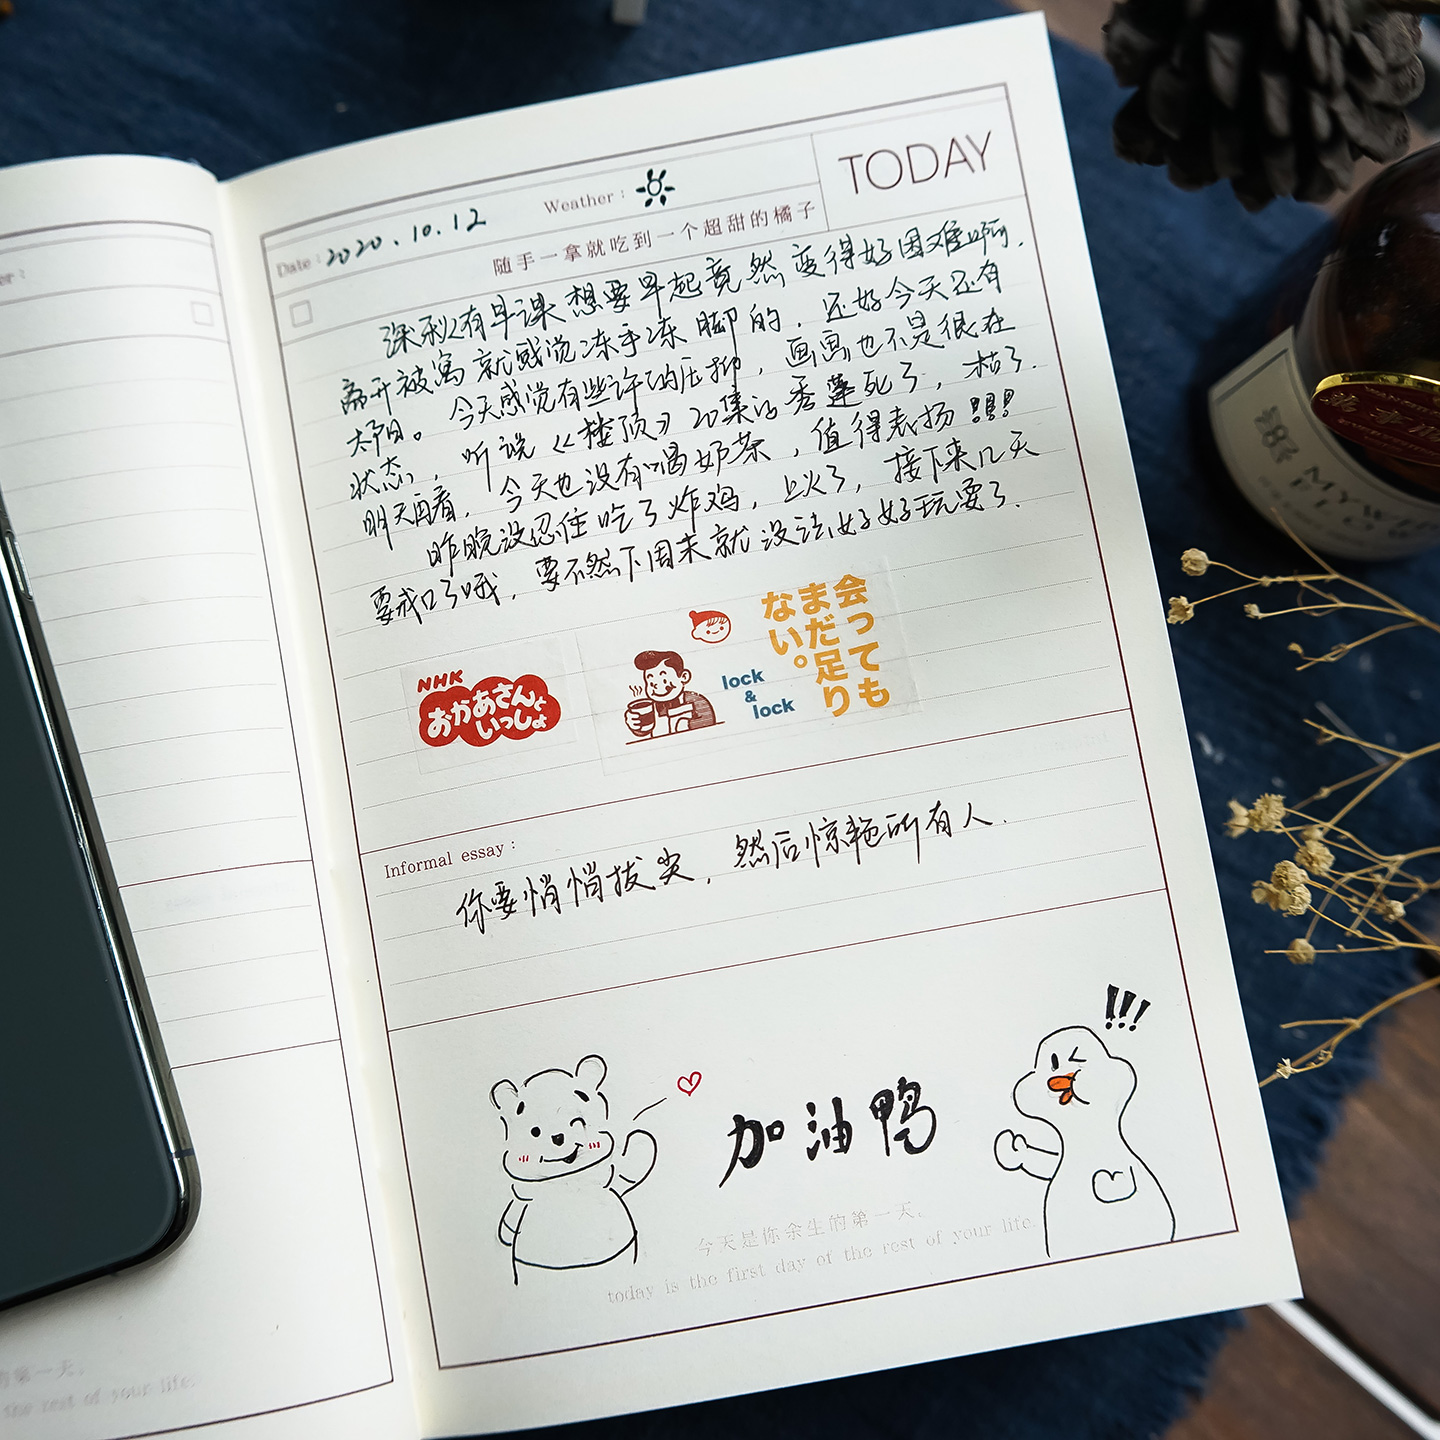 TODAY
Date: 2020.10.12
Weather:
随手一拿就吃到一个超甜的橘子
深秋有早课想要早起竟然变得好困难啊.
离开被窝就感觉冻手冻脚的.还好今天还有
太阳。今天感觉有些许的压抑,画画也不是很在
状态,听说《楼顶》20集的秀莲死了,枯了.
明天再看,今天也没有喝奶茶,值得表扬!!!
昨晚没忍住吃了炸鸡,上火了,接下来几天
要戒口了哦,要不然下周末就没法好好玩耍了.
NHK
おかあさんと
いっしょ
lock
&
lock
会っても
まだ足り
ない。
Informal essay:
你要悄悄拔尖,然后惊艳所有人.
!!!
加油鸭
今天是你余生的第一天.
today is the first day of the rest of your life.
er:
的第一天.
the rest of your life.